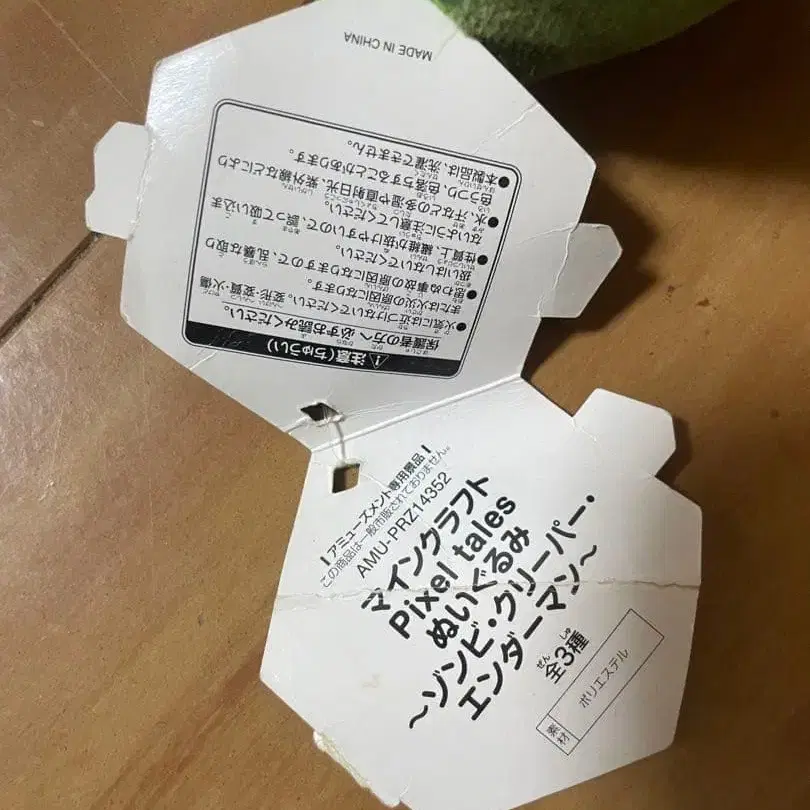 アミューズメント専用景品
この商品は一般市販されておりません。
AMU-PRZ14352
マインクラフト
Pixel tales
ぬいぐるみ
～ゾンビ・クリーパー・
エンダーマン～
ぜん しゅ
全3種
素材
ポリエステル
注意(ちゅうい)
ほごしゃ かた かなら よ
保護者の方へ 必ずお読みください。
●火気には近づけないでください。変形・変質・火傷
または火災の原因になります。
●思わぬ事故の原因になりますので、乱暴な取り
扱いはしないでください。
●性質上、繊維が抜けやすいので、誤って吸い込ま
ないように注意してください。
●水、汗などの多湿や直射日光、紫外線などにより
色うつり、色落ちすることがあります。
●本製品は、洗濯できません。
MADE IN CHINA